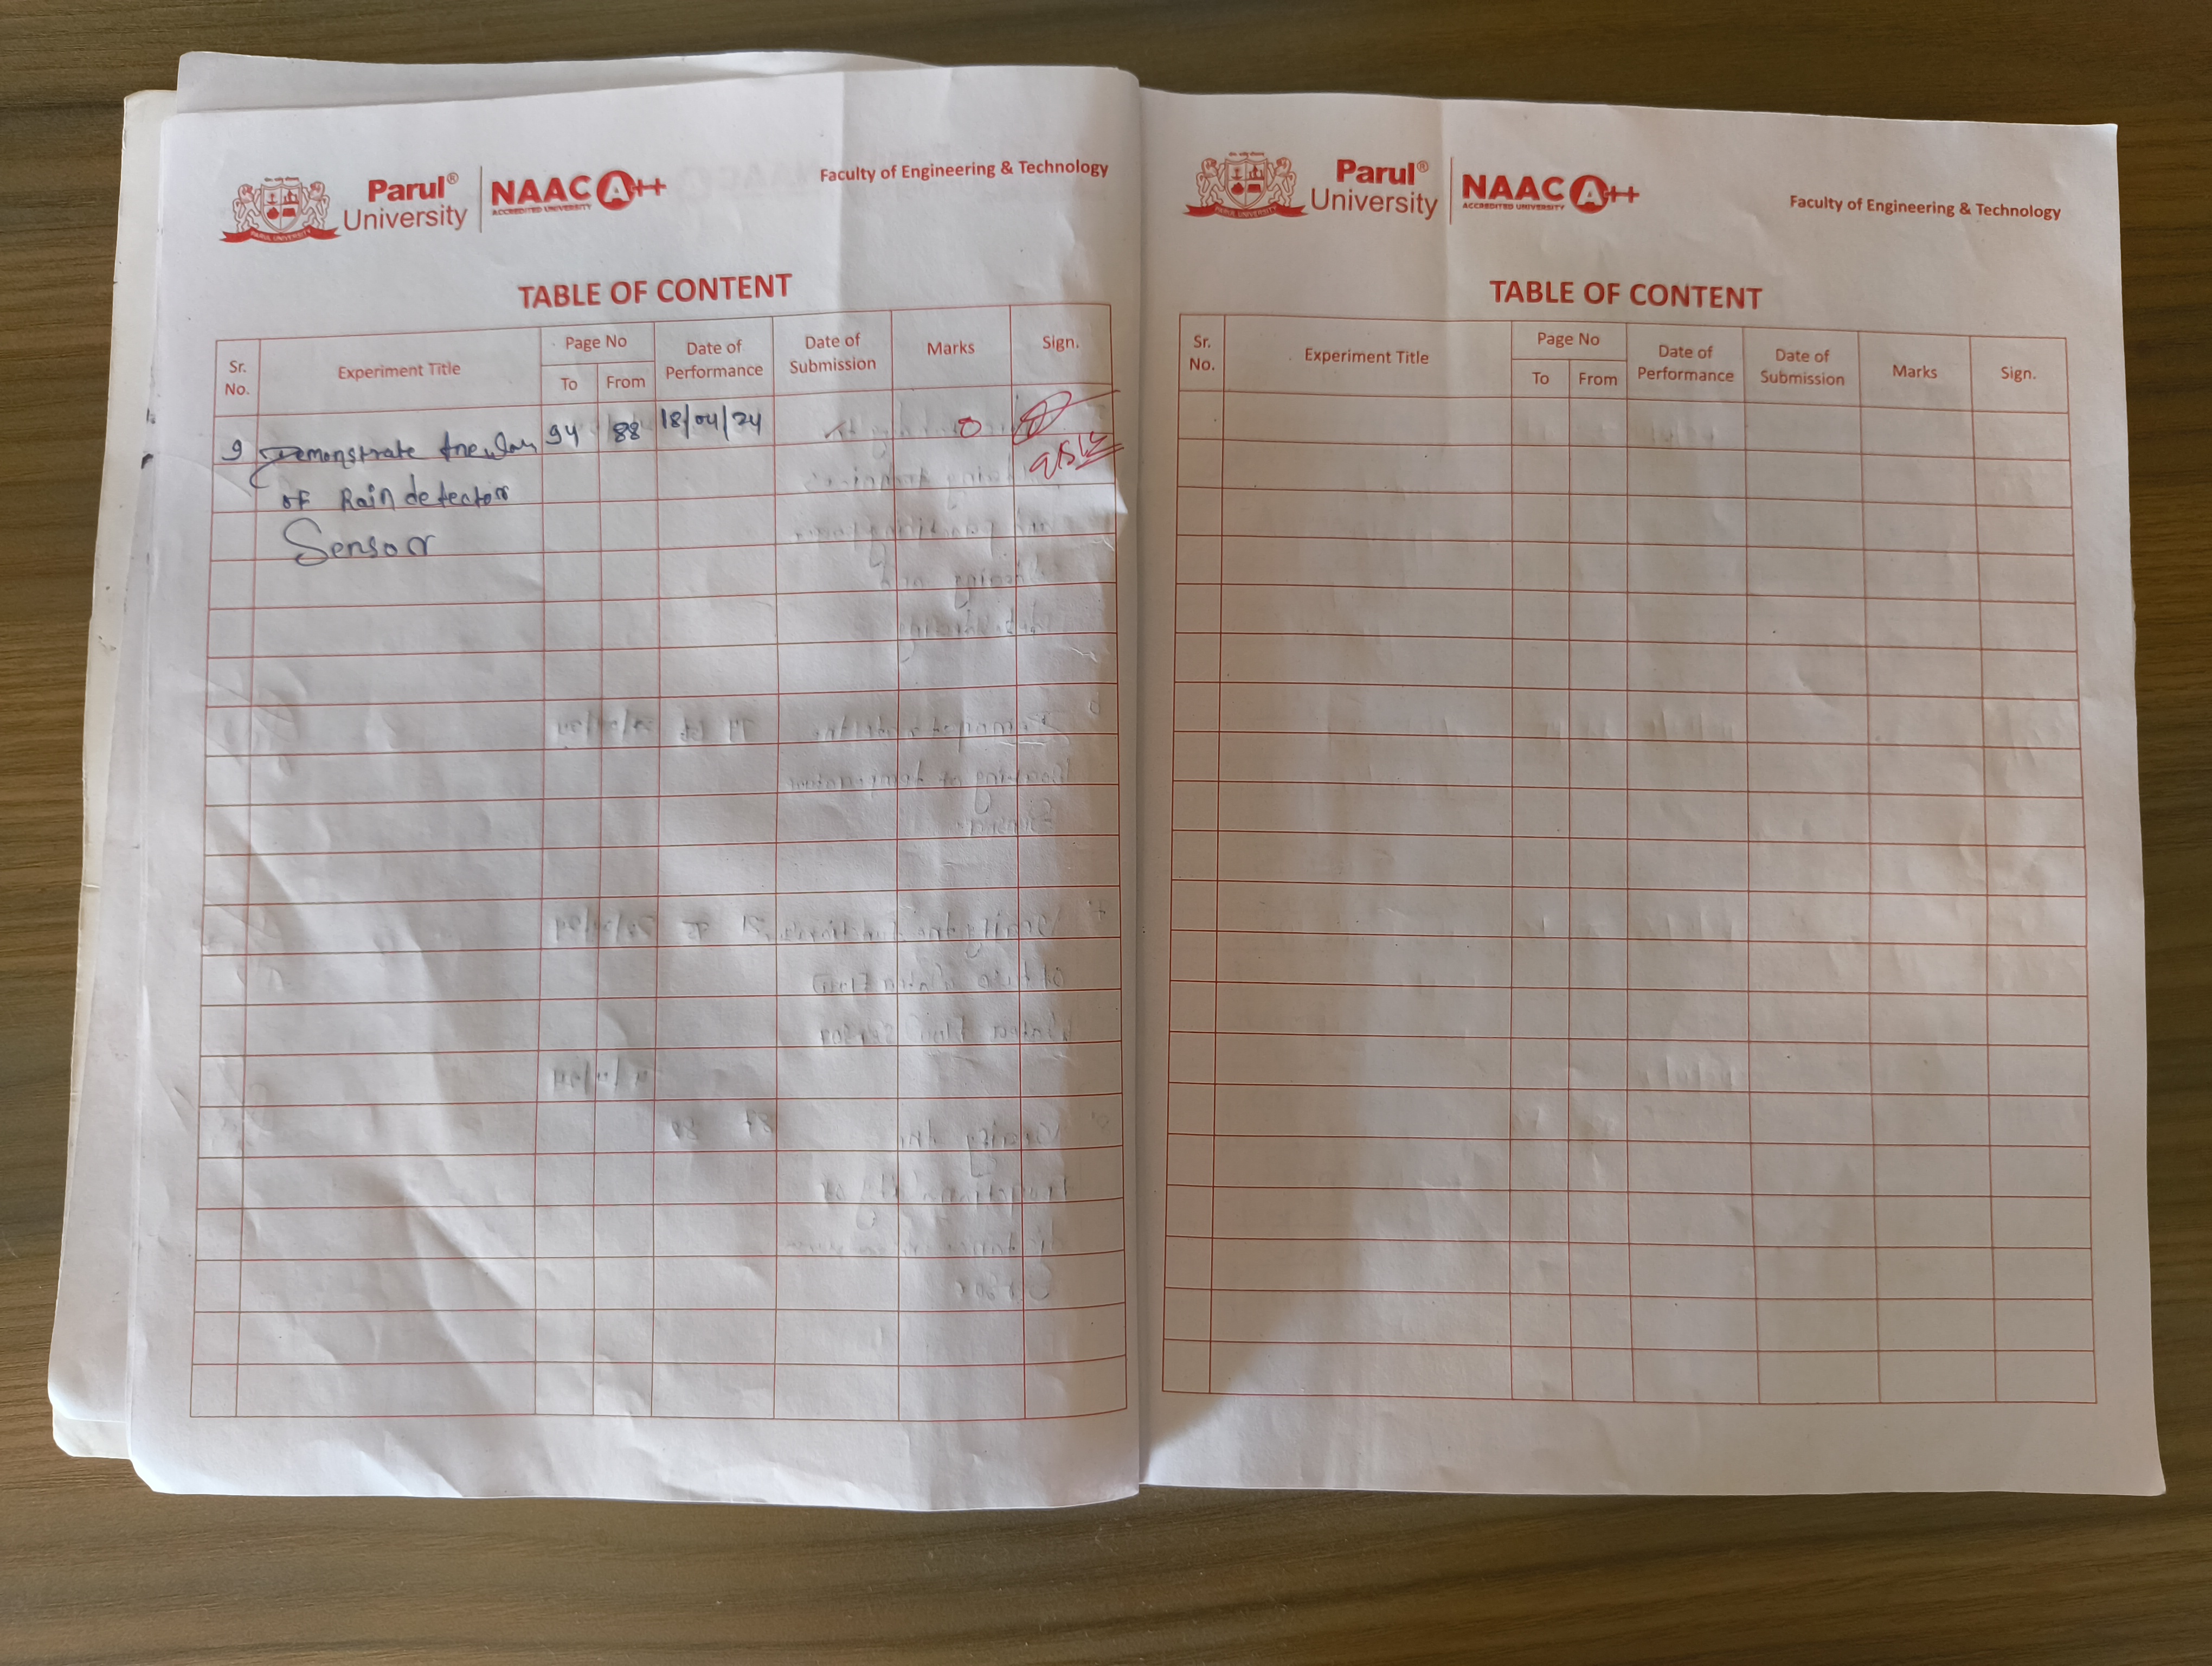 Parul®
University
NAAC A++
ACCREDITED UNIVERSITY
PARUL UNIVERSITY
Faculty of Engineering & Technology
TABLE OF CONTENT
Sr. No. Experiment Title Page No To From Date of Performance Date of Submission Marks Sign.
9 Demonstrate 94 88 18/04/24
of Rain detector
Sensor
Parul®
University
NAAC A++
ACCREDITED UNIVERSITY
PARUL UNIVERSITY
Faculty of Engineering & Technology
TABLE OF CONTENT
Sr. No. Experiment Title Page No To From Date of Performance Date of Submission Marks Sign.